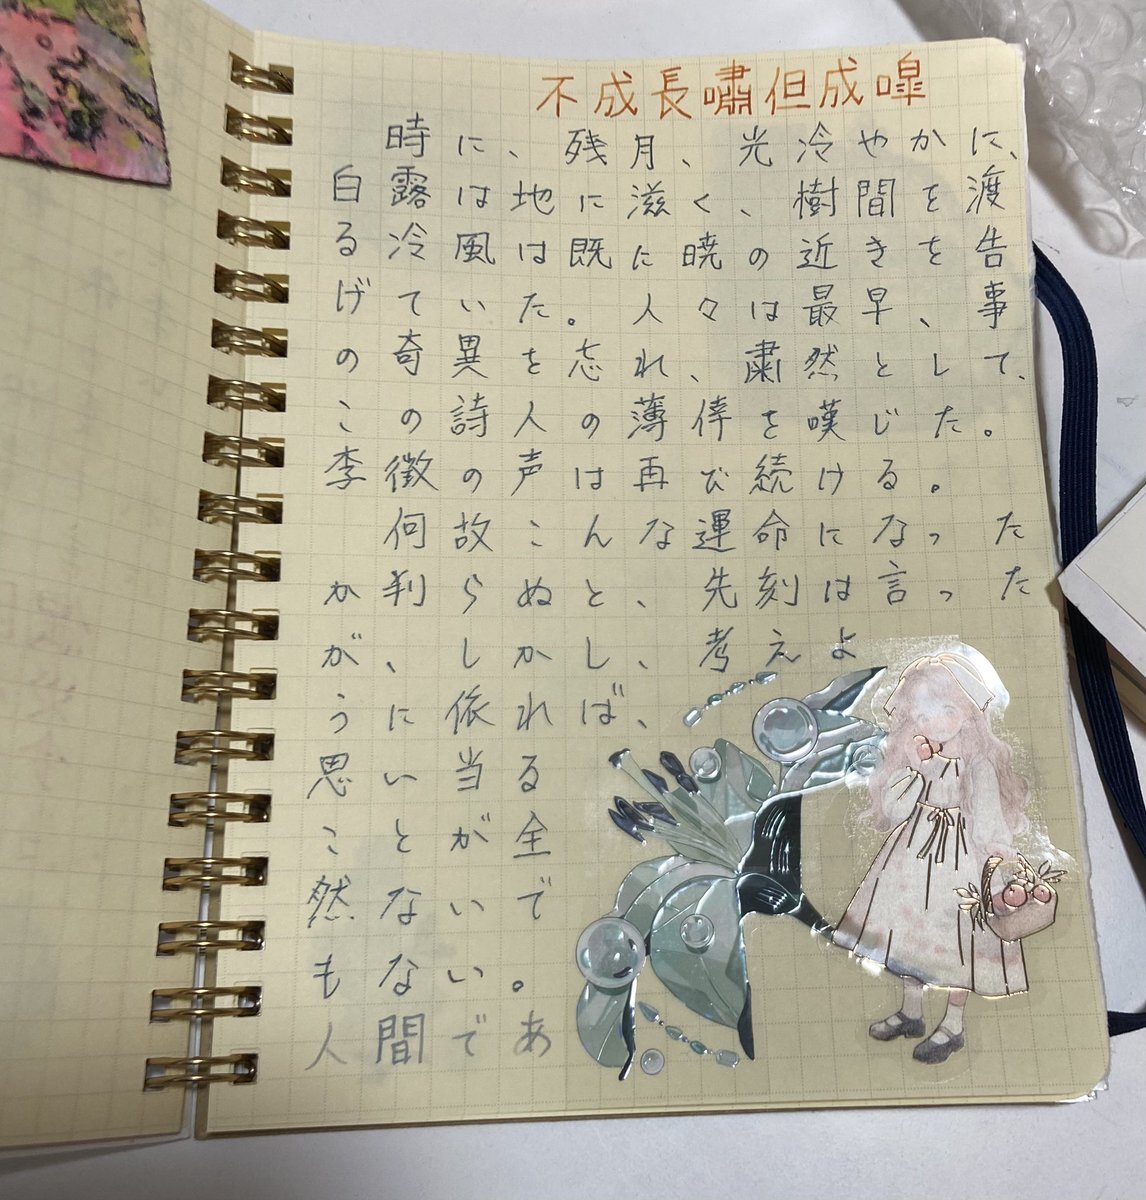 不成長嘯但成嘷
時に、残月、光冷やかに、
白露は地に滋く、樹間を渡
る冷風は既に暁の近きを告
げていた。人々は最早、事
の奇異を忘れ、粛然として、
この詩人の薄倖を嘆じた。
李徴の声は再び続ける。
何故こんな運命になった
か判らぬと、先刻は言った
が、しかし、考えよ
うに依れば、
思い当る
ことが全
然ないで
もない。
人間であ